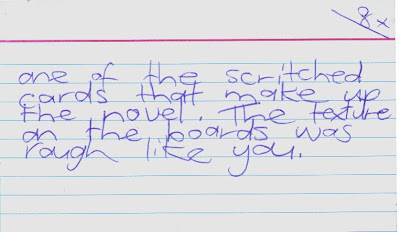 8x
one of the scritched
cards that make up
the novel. The texture
on the boards was
rough like you.